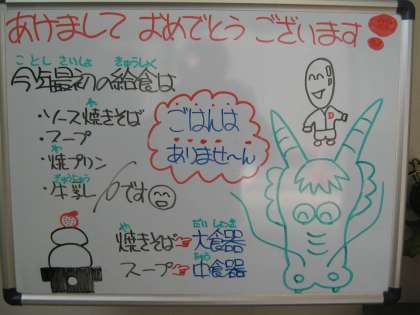 あけまして おめでとう ございます!
ことし さいしょ きゅうしょく
今年最初の給食は
・ソース焼きそば
や
・スープ
・焼プリン
や
・牛乳 です
ぎゅうにゅう
ごはんは
ありませ〜ん
焼きそば☞大食器
や だい しょっき
スープ☞中食器
ちゅう
D